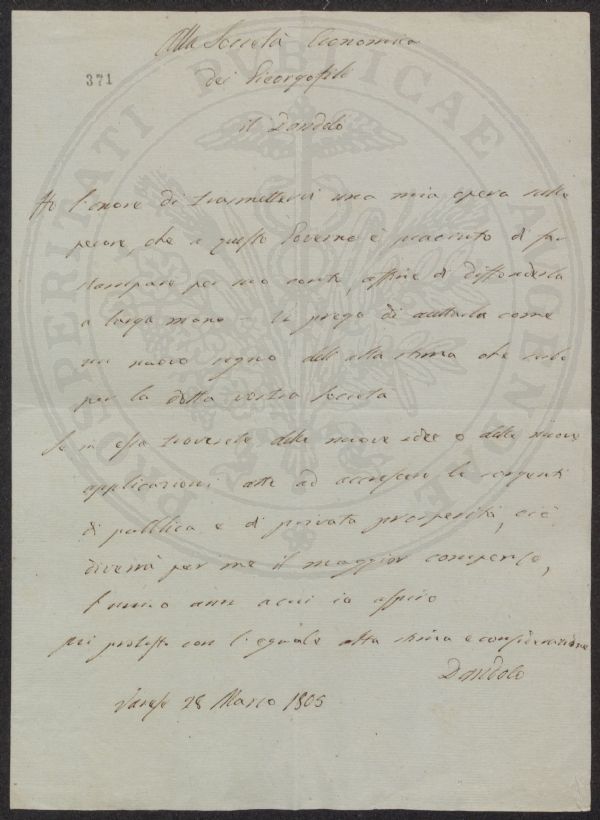 Alla Società Economica
371
dei Georgofili
il Dandolo
Ho l'onore di trasmettervi una mia opera sulle
pecore, che a questo Governo è piaciuto di far
stampare per suo conto, affine di diffonderla
a larga mano – Vi prego di accettarla come
un nuovo segno dell'alta stima che serbo
per la dotta vostra Società
Se in essa troverete delle nuove idee o delle nuove
applicazioni atte ad accrescere le sorgenti
di pubblica e di privata prosperità, ciò
diverrà per me il maggior compenso,
l'unico anzi a cui io aspiro
protesto con l'eguale alta stima e considerazione
Dandolo
Varese 28 Marzo 1805
PROSPERITATI PUBLICAE AUGENDAE